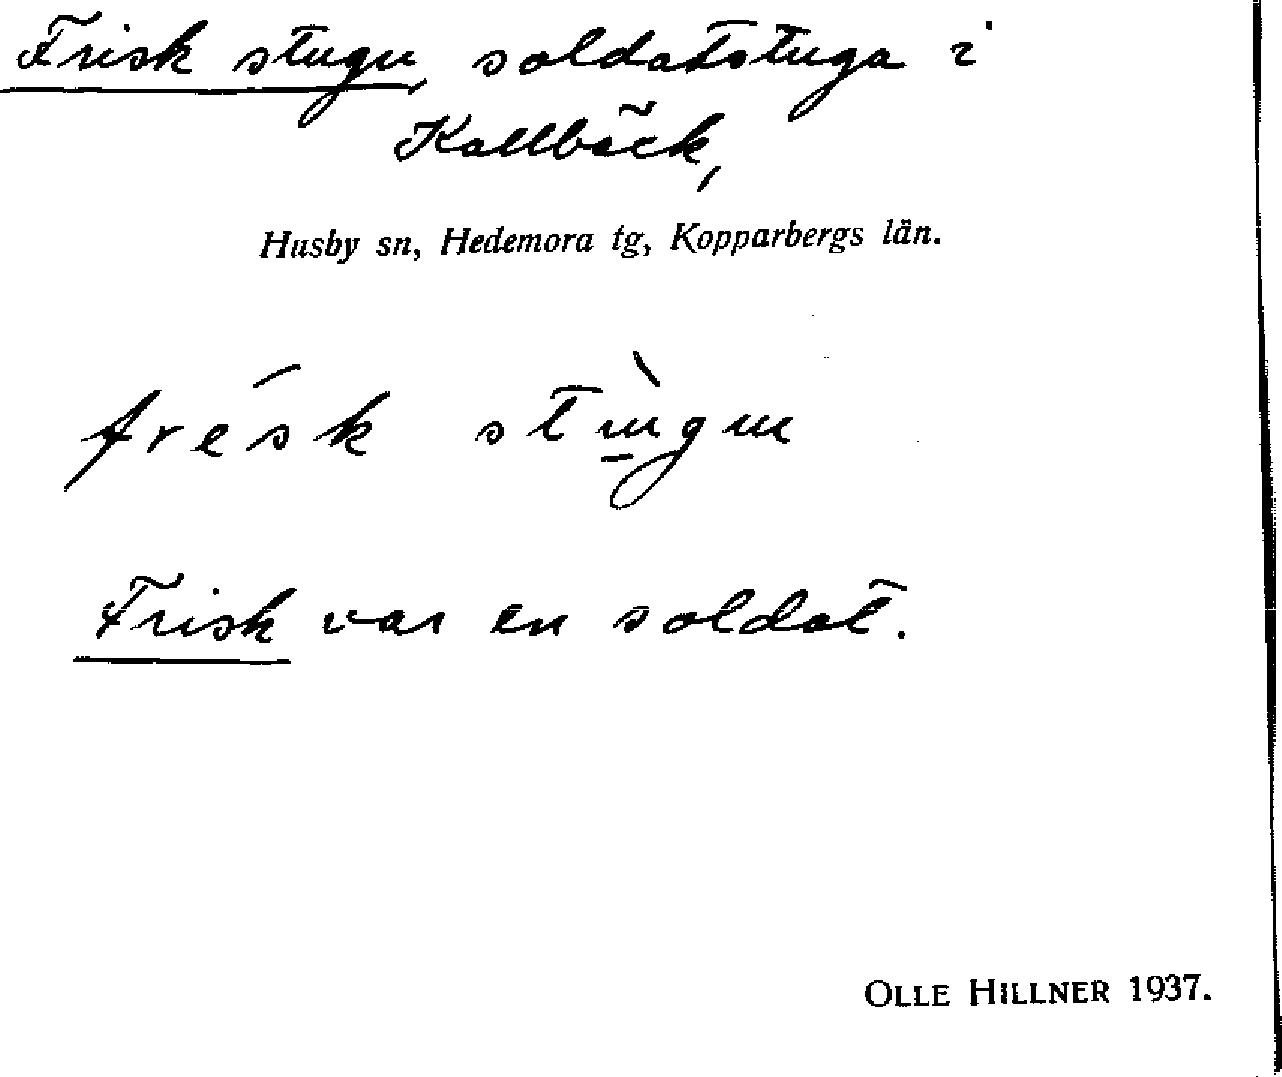 Frisk stugu, soldatstuga i
Kallbäck,
Husby sn, Hedemora tg, Kopparbergs län.
Frisk var en soldat.
OLLE HILLNER 1937.